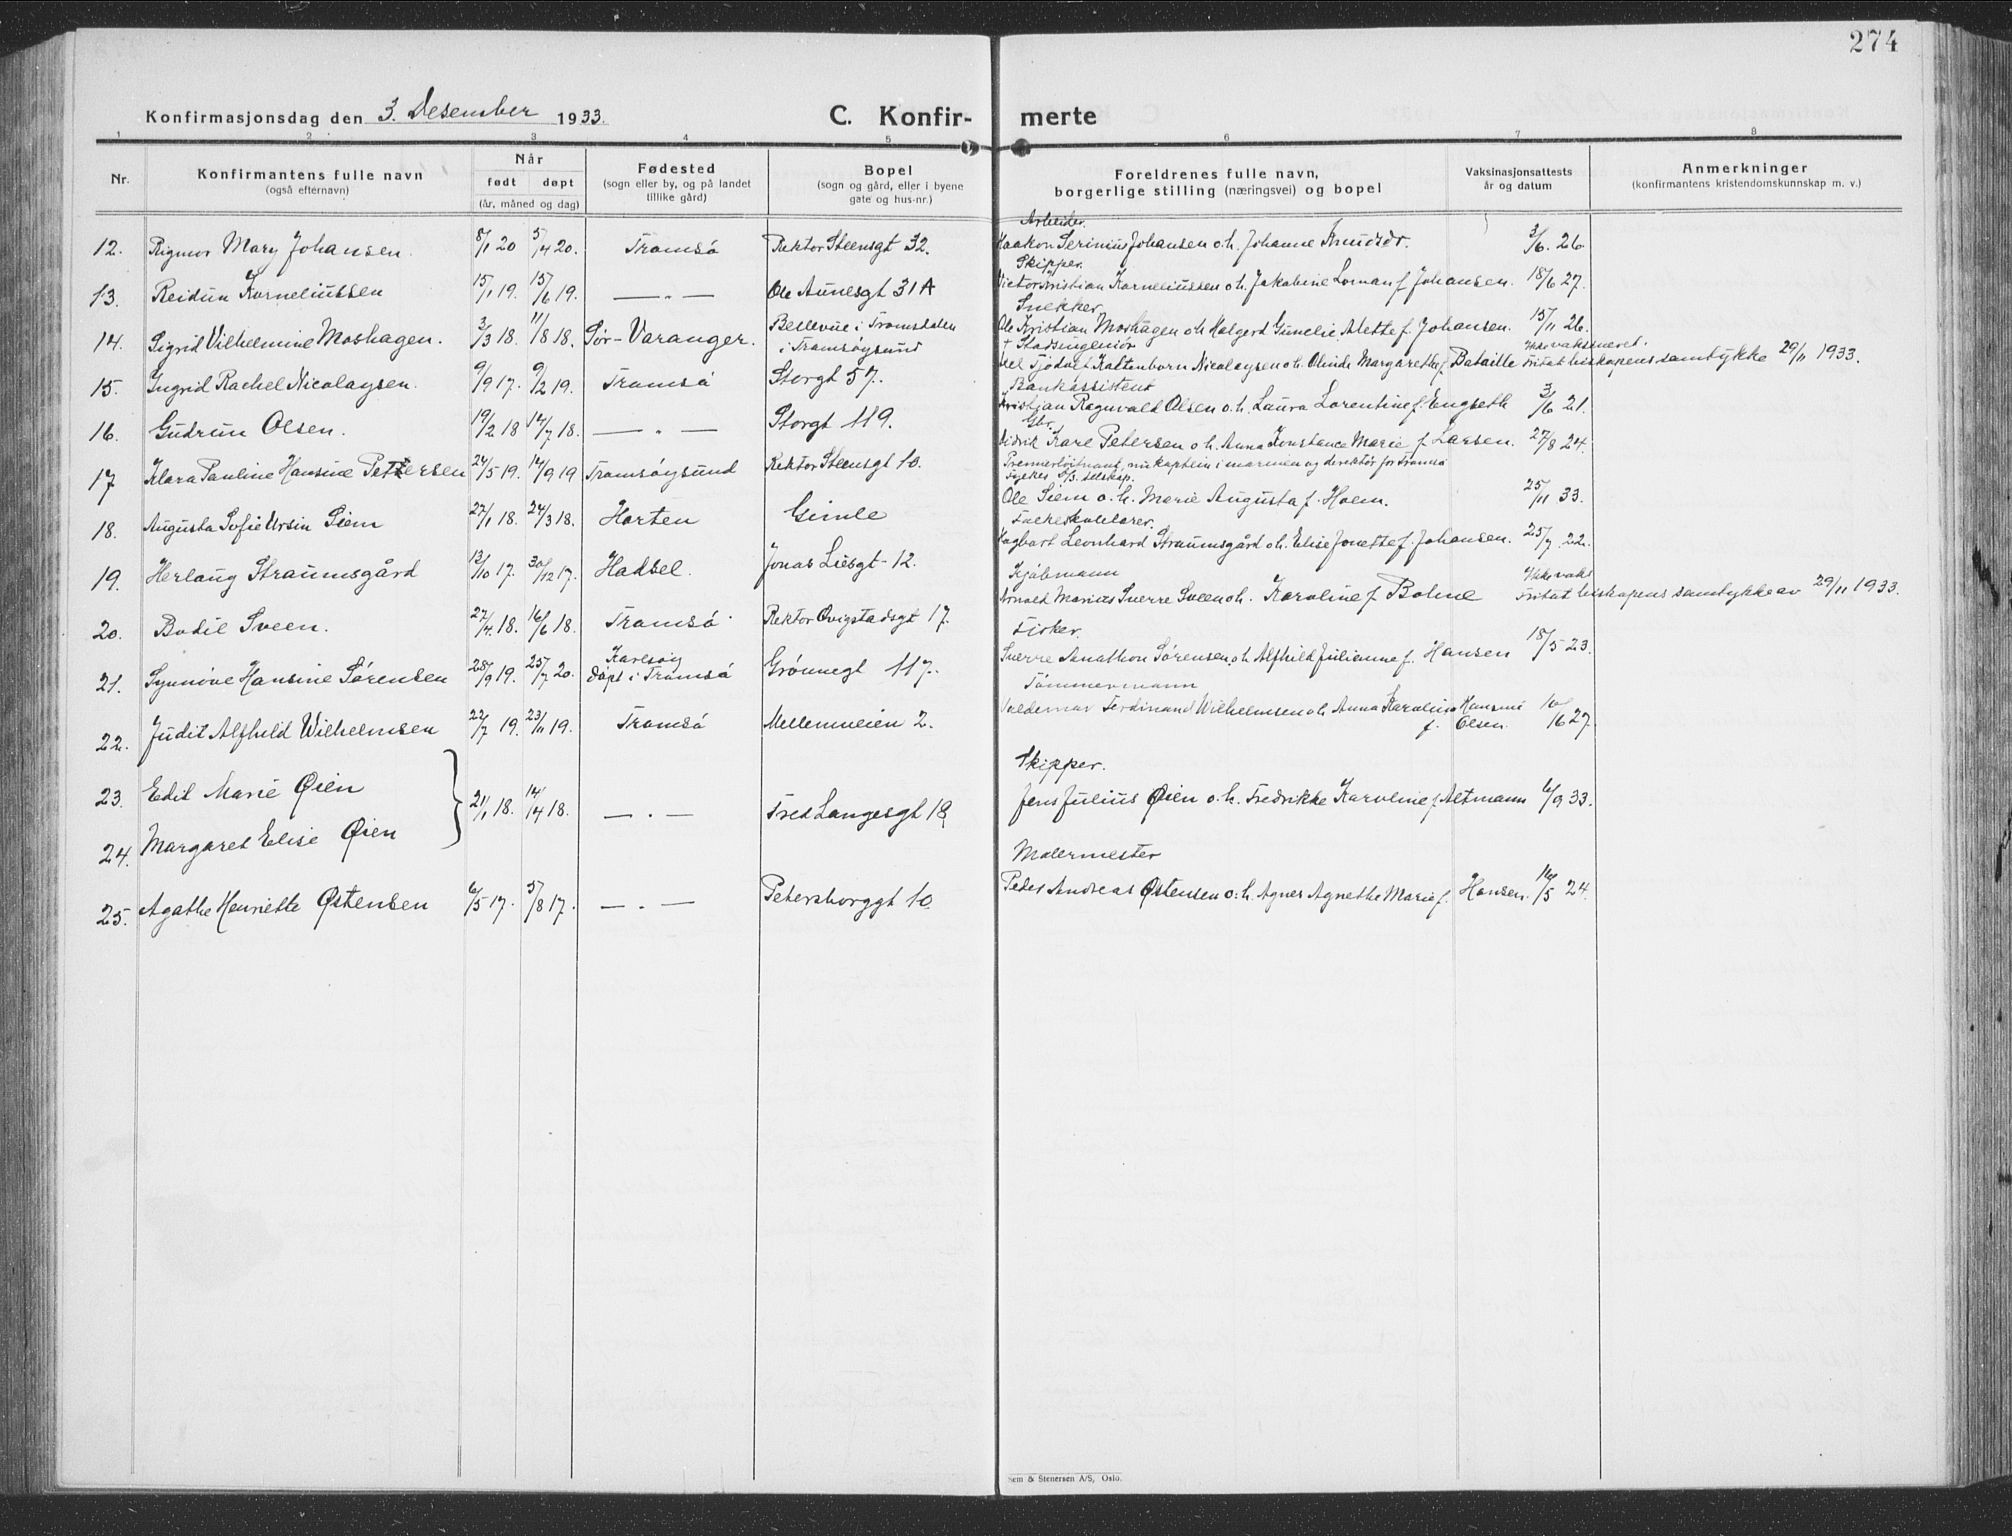 274
Konfirmasjonsdag den 3. Desember 1933. C. Konfir- merte
1 2 3 4 5 6 7 8
Nr.
Konfirmantens fulle navn
(også efternavn)
Når
født døpt
(år, måned og dag)
Fødested
(sogn eller by, og på landet
tillike gård)
Bopel
(sogn og gård, eller i byene
gate og hus-nr.)
Foreldrenes fulle navn,
borgerlige stilling (næringsvei) og bopel
Vaksinasjonsattests
år og datum
Anmerkninger
(konfirmantens kristendomskunnskap m. v.)
Arbeider.
12. Rigmor Mary Johansen. 8/1 20 5/4 20. Tromsø Rektor Steensgt 32. Haakon Serinius Johansen o.h. Johanne Knudsdr. 3/6. 26
Skipper.
13. Reidun Korneliussen 15/1 19. 15/6 19. — " — Ole Aunesgt 31A Victor Kristian Korneliussen o h. Jakobine Loman f Johansen. 18/6 27.
Snekker.
14. Sigrid Vilhelmine Moshagen. 3/3 18. 11/8 18. Sør-Varanger. Bellevue i Tromsdalen
i Tromsøysund
Ole Kristian Moshagen o h Holgerd Gunelie Alette f. Johansen. 15/11 26.
† Stadsingeniør
15. Ingrid Rachel Nicolaysen. 9/9 17. 9/2 19. Tromsø Storgt 57. Axel Tjodolf Kaltenborn Nicolaysen o h. Olvide Margarethe f. Bataille Ikke vaksineret.
Fritat biskopens samtykke 29/11 1933.
Bankassistent
16. Gudrun Olsen. 19/2 18 14/7 18. — " — Storgt 119. Kristjan Ragnvald Olsen o.h. Laura Lorentine f. Engseth 3/6 21.
Gbr.
17 Klara Pauline Hansine Pettersen 24/5 19. 14/9 19 Tromsøysund Rektor Steensgt 10. Didrik Karl Petersen o h. Anna Konstance Marie f Larsen. 27/8 24.
Premierløitnant, nu kaptein i marinen og direktør for Tromsø
Fylkes D/S. selskap.
18. Augusta Sofie Ursin Siem 27/1 18. 24/3 18. Horten Gimle Ole Siem o. h. Marie Augusta f. Holm. 25/11 33.
Folkeskolelærer.
19. Herlaug Straumsgård 13/10 17. 30/12 17. Hadsel. Jonas Liesgt- 12. Hagbart Leonhard Straumsgård o h. Elise Jonette f. Johansen. 25/7. 22.
Kjøbmann
20. Bodil Sveen. 27/4 18. 16/6 18. Tromsø Rektor Qvigstadsgt 17. Arnold Marius Sverre Sveen o h. Karoline f Bohne Ikke vaks
Fritat biskopens samtykke av 29/11 1933.
Fisker.
21. Synnøve Hansine Sørensen 28/9 19. 25/7 20. Karlsøy
døpt i Tromsø
Grønnegt 117. Sverre Jonathon Sørensen o h Alfhild Julianne f. Hansen 18/5 23.
Tømmermann
22. Judit Alfhild Wilhelmsen 22/7 19. 23/11 19. Tromsø Mellemveien 2. Valdemar Ferdinand Wilhelmsen o h Anna Karoline Hansine
f. Olsen. 10/6 27.
Skipper.
23. Edit Marie Øien
24. Margaret Elise Øien
21/1 18. 14/4 18. — " — Fred Langesgt 18 Jens Julius Øien o. h. Fredrikke Karoline f Altmann 6/9 33.
Malermester
25. Agathe Henriette Østensen 6/5 17. 5/8 17. — " — Petersborggt 10. Peder Andreas Østensen o. h. Agnes Agnethe Marie f. Hansen. 16/5 24.
Sem & Stenersen A/S, Oslo.